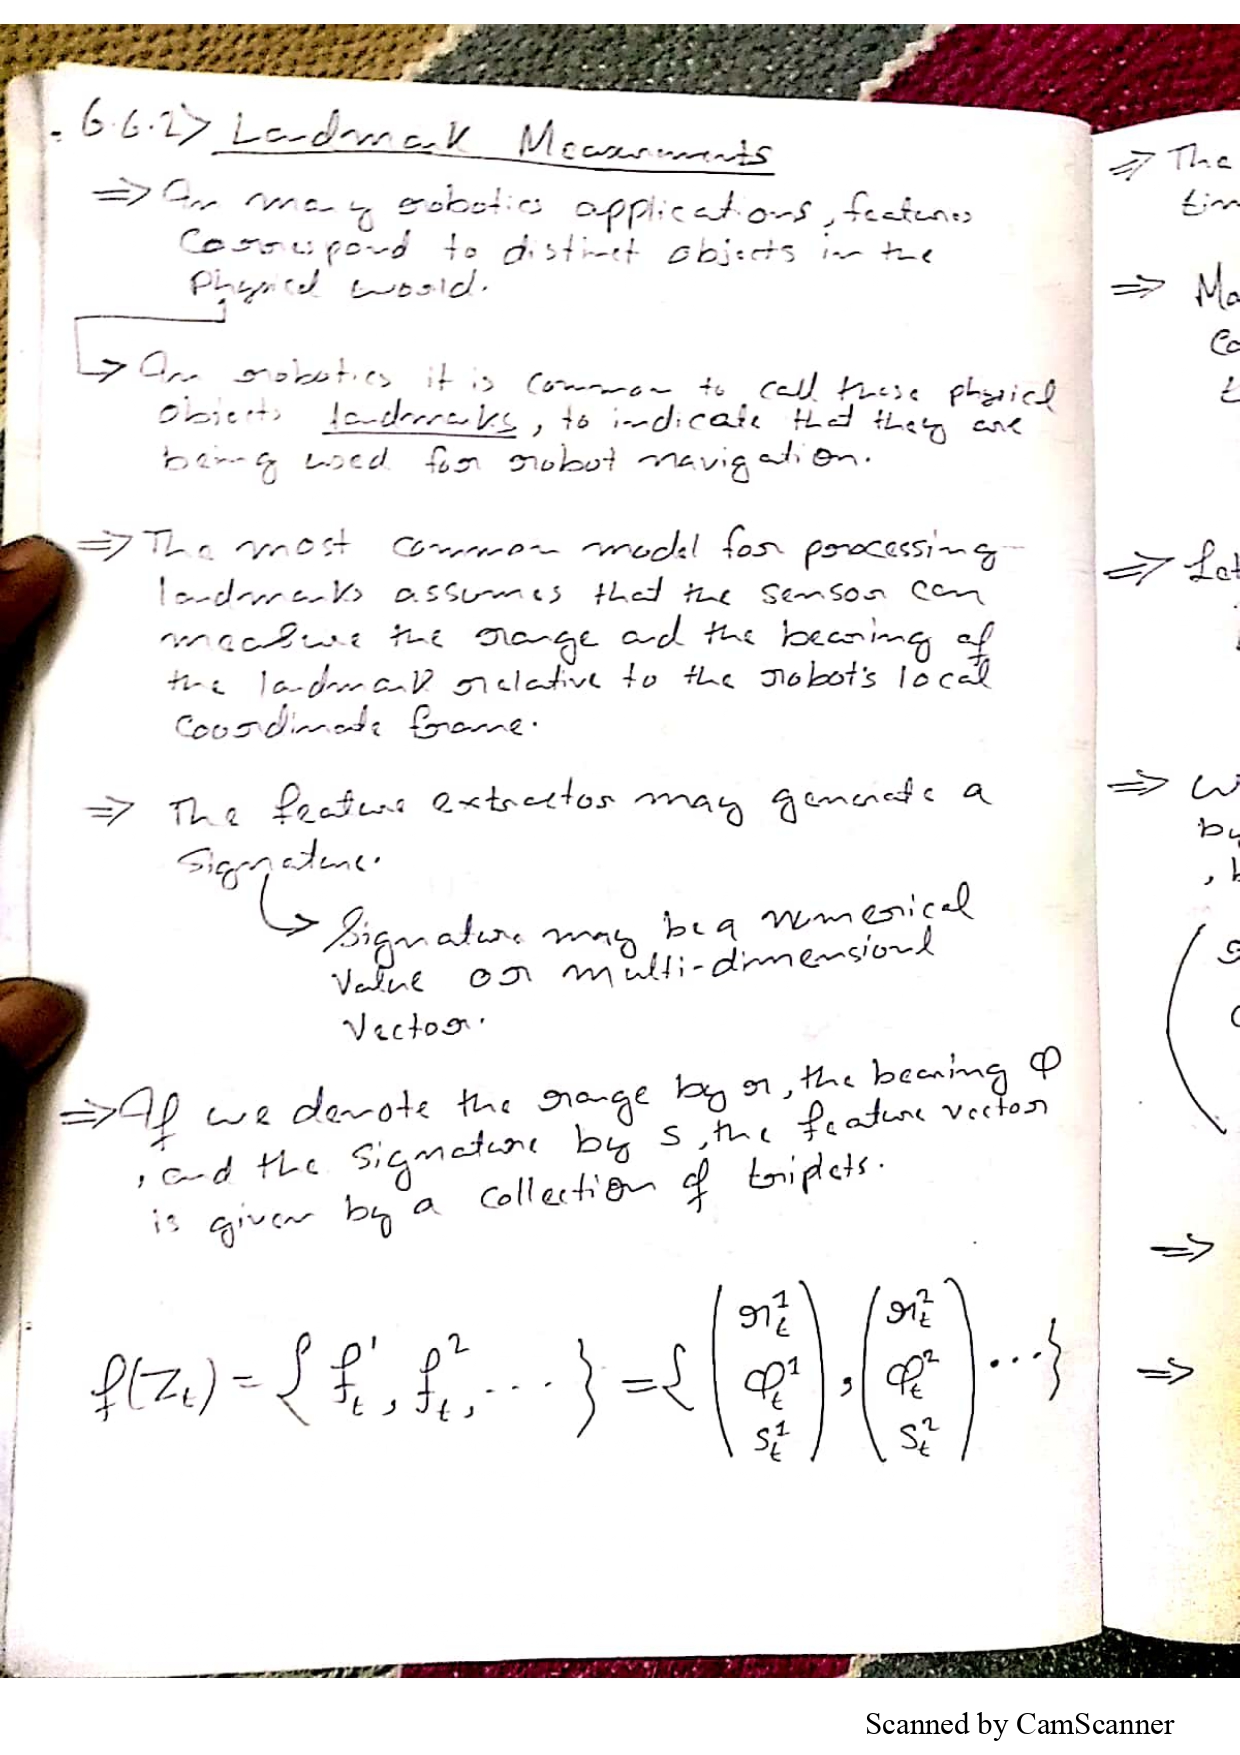 6.6.2> Landmark Measurements
=> In many robotics applications, features
correspond to distinct objects in the
Physical world.
-> In robotics it is common to call these physical
objects landmarks, to indicate that they are
being used for robot navigation.
=> The most common model for processing
landmarks assumes that the sensor can
measure the range and the bearing of
the landmark relative to the robot's local
coordinate frame.
=> The feature extractor may generate a
Signature.
-> Signature may be a numerical
value or multi-dimensional
vector.
=> If we denote the range by r, the bearing φ
, and the signature by s, the feature vector
is given by a collection of triplets.
f(Z_t) = { f_t^1, f_t^2, ... } = { (r_t^1 φ_t^1 s_t^1), (r_t^2 φ_t^2 s_t^2) ... }
=> The
=> Ma
co
=> Let
=> W
by
=>
=>
Scanned by CamScanner